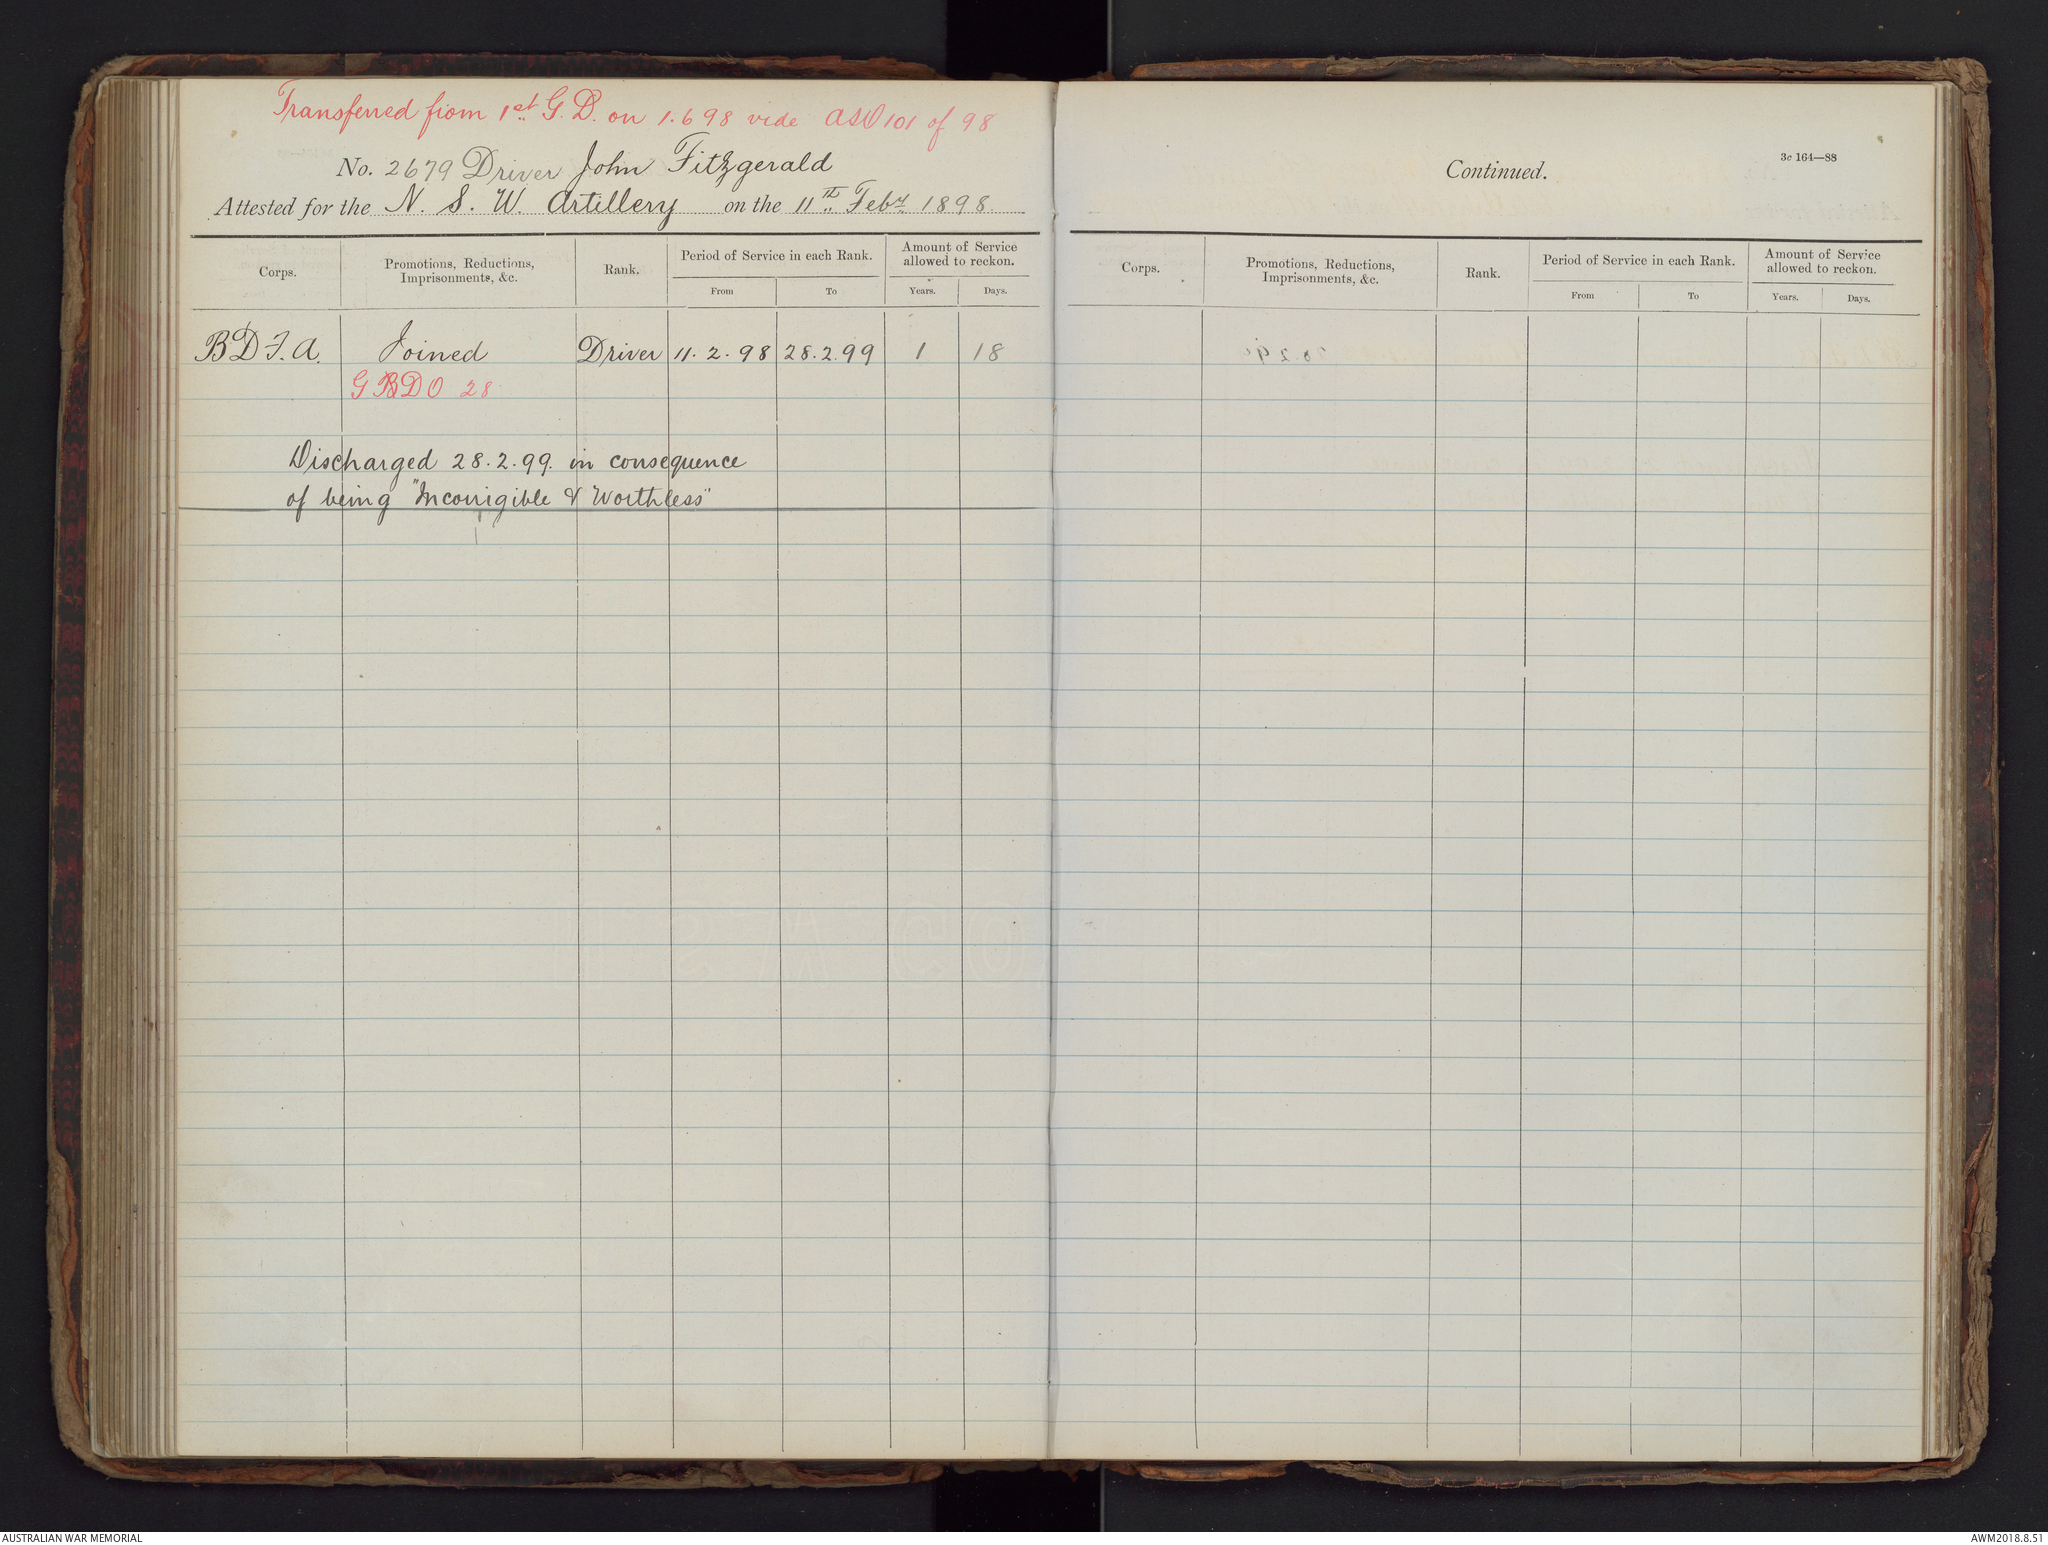 Transferred from 1st G. D. on 1.6 98 vide ASO 101 of 98
No. 2679 Driver John Fitzgerald
Attested for the N. S. W. Artillery on the 11th Feby 1898.
Corps. Promotions, Reductions, Imprisonments, &c. Rank. Period of Service in each Rank. Amount of Service allowed to reckon.
From To Years. Days.
B D F. A. Joined Driver 11. 2. 98 28. 2. 99 1 18
G BDO 28
Discharged 28. 2. 99. in consequence
of being "Incorrigible & Worthless"
3c 164—88
Continued.
Corps. Promotions, Reductions, Imprisonments, &c. Rank. Period of Service in each Rank. Amount of Service allowed to reckon.
From To Years. Days.
AUSTRALIAN WAR MEMORIAL
AWM2018.8.51